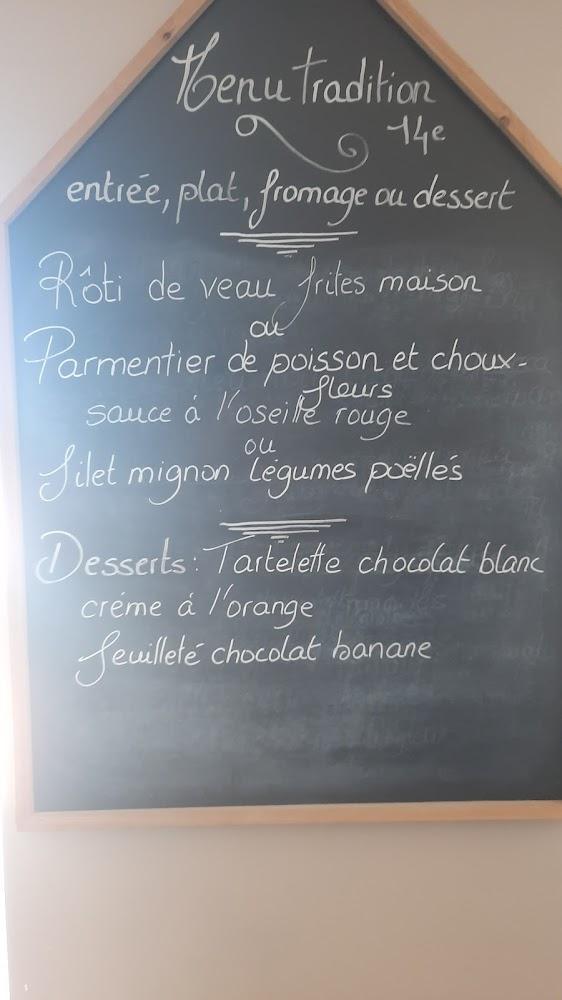 Menu Tradition
14e
entrée, plat, fromage ou dessert
Rôti de veau frites maison
ou
Parmentier de poisson et choux-
fleurs
sauce á l'oseille rouge
ou
Filet mignon Légumes poëllés
Desserts: Tartelette chocolat blanc
créme á l'orange
feuilleté chocolat banane